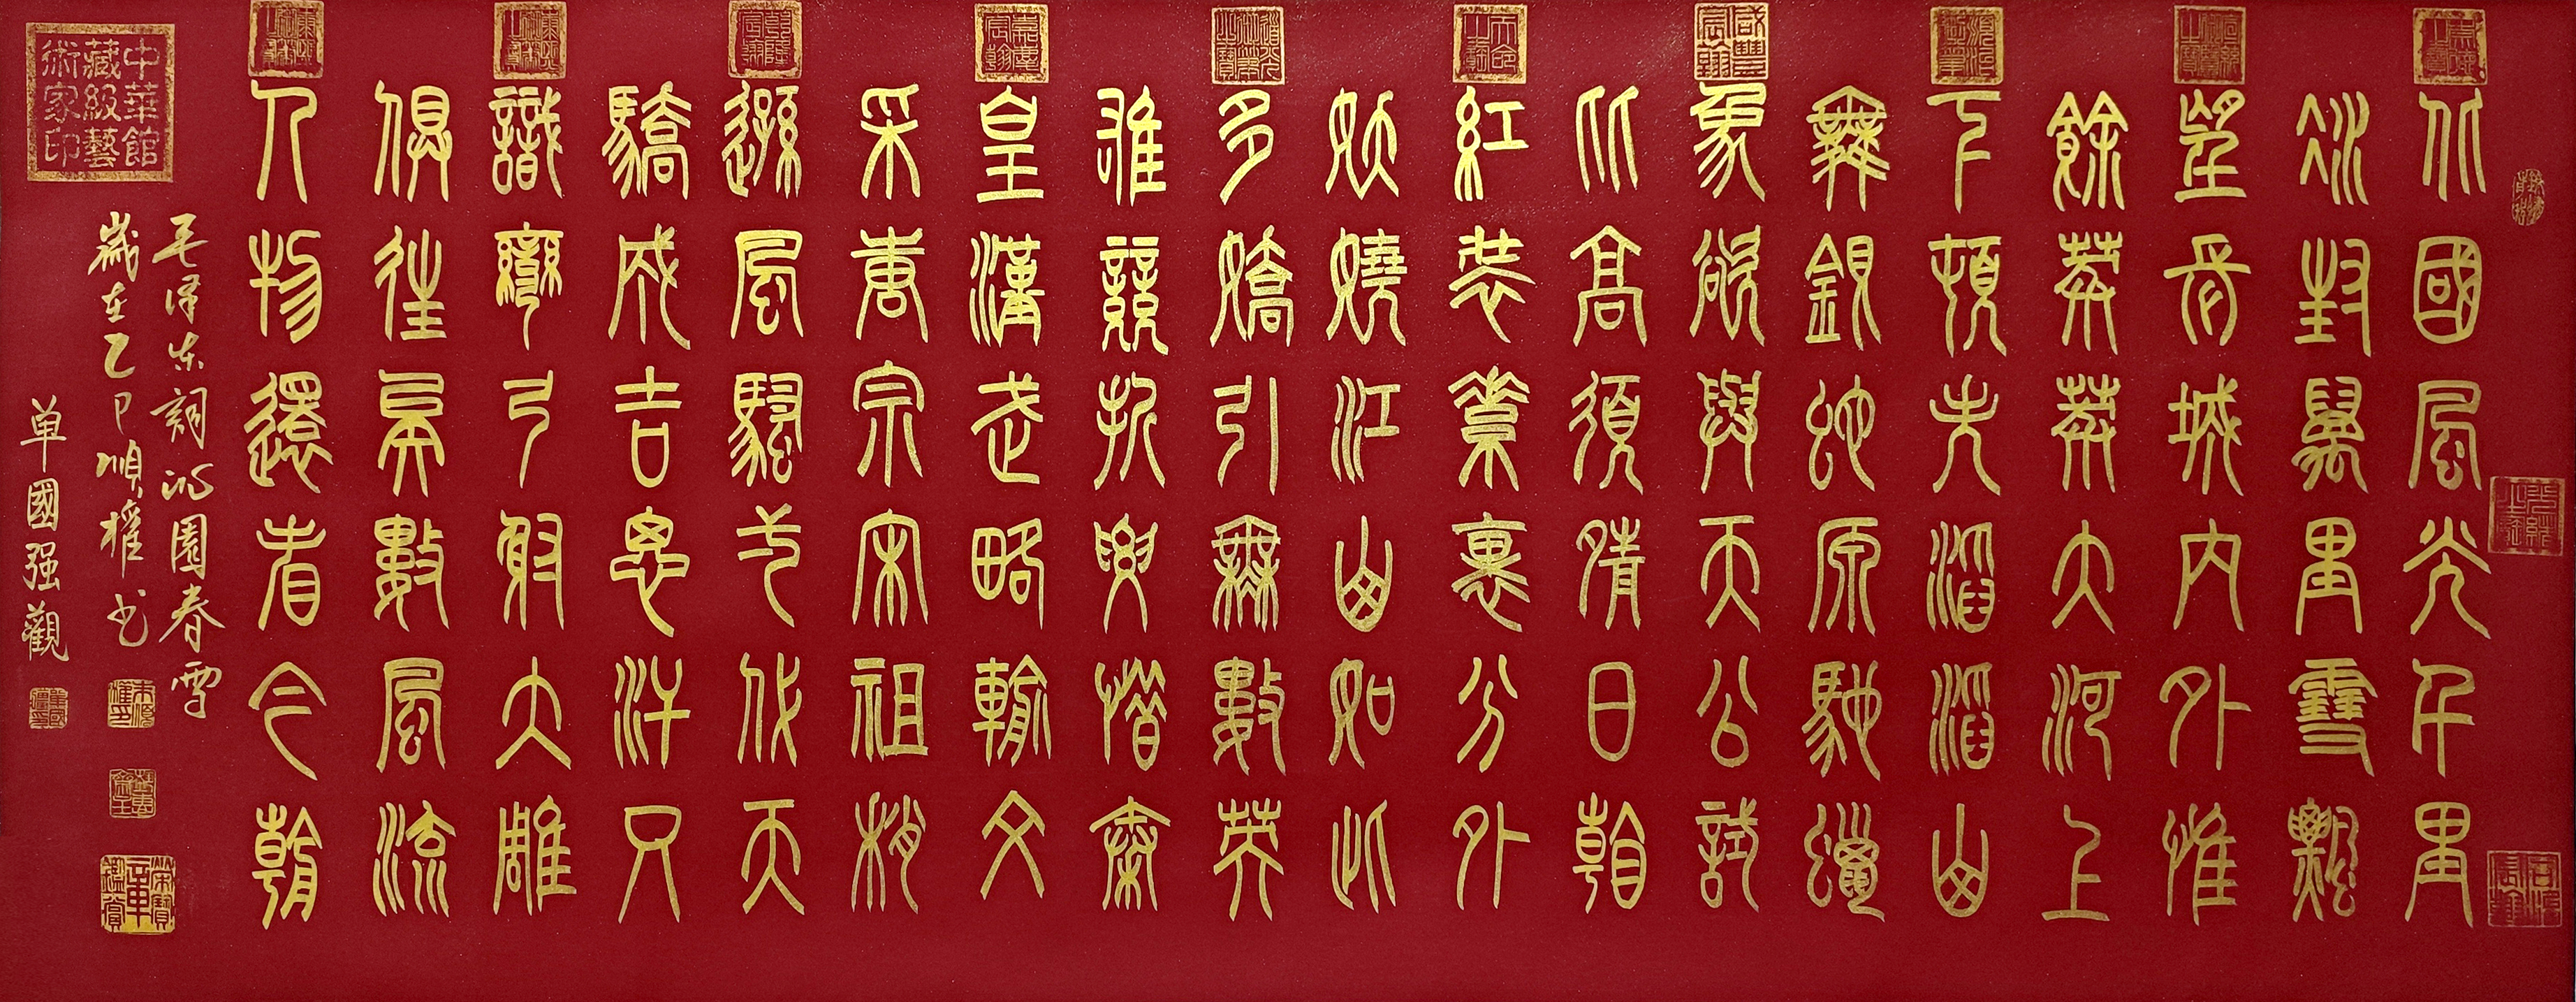 北國風光千里
冰封萬里雪飄
望長城內外惟
餘莽莽大河上
下頓失滔滔山
舞銀蛇原馳蠟
象欲與天公試
比高須晴日看
紅裝素裹分外
妖嬈江山如此
多嬌引無數英
雄競折腰惜秦
皇漢武略輸文
采唐宗宋祖稍
遜風騷弌代天
驕成吉思汗只
識彎弓射大雕
俱往矣數風流
人物還看今朝
毛泽东詞沁園春雪
歲在乙巳順權书
单國强觀
中華館
藏級藝
術家印